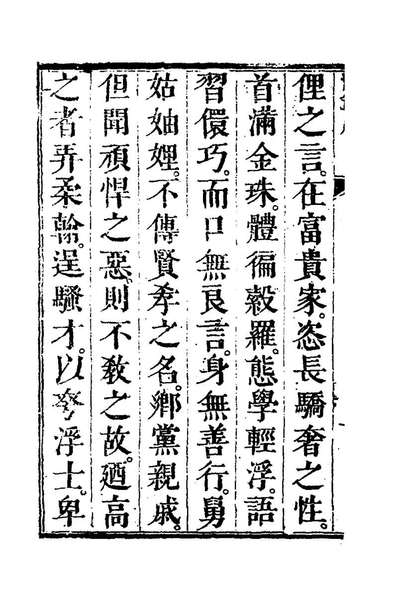 俚之言。在富貴家。恣長驕奢之性。
首滿金珠。體徧縠羅。態學輕浮。語
習儇巧。而口無良言。身無善行。舅
姑妯娌。不傳賢孝之名。鄉黨親戚。
但聞頑悍之惡。則不敎之故。廼高
之者弄柔翰。逞騷才。以夸浮士。卑